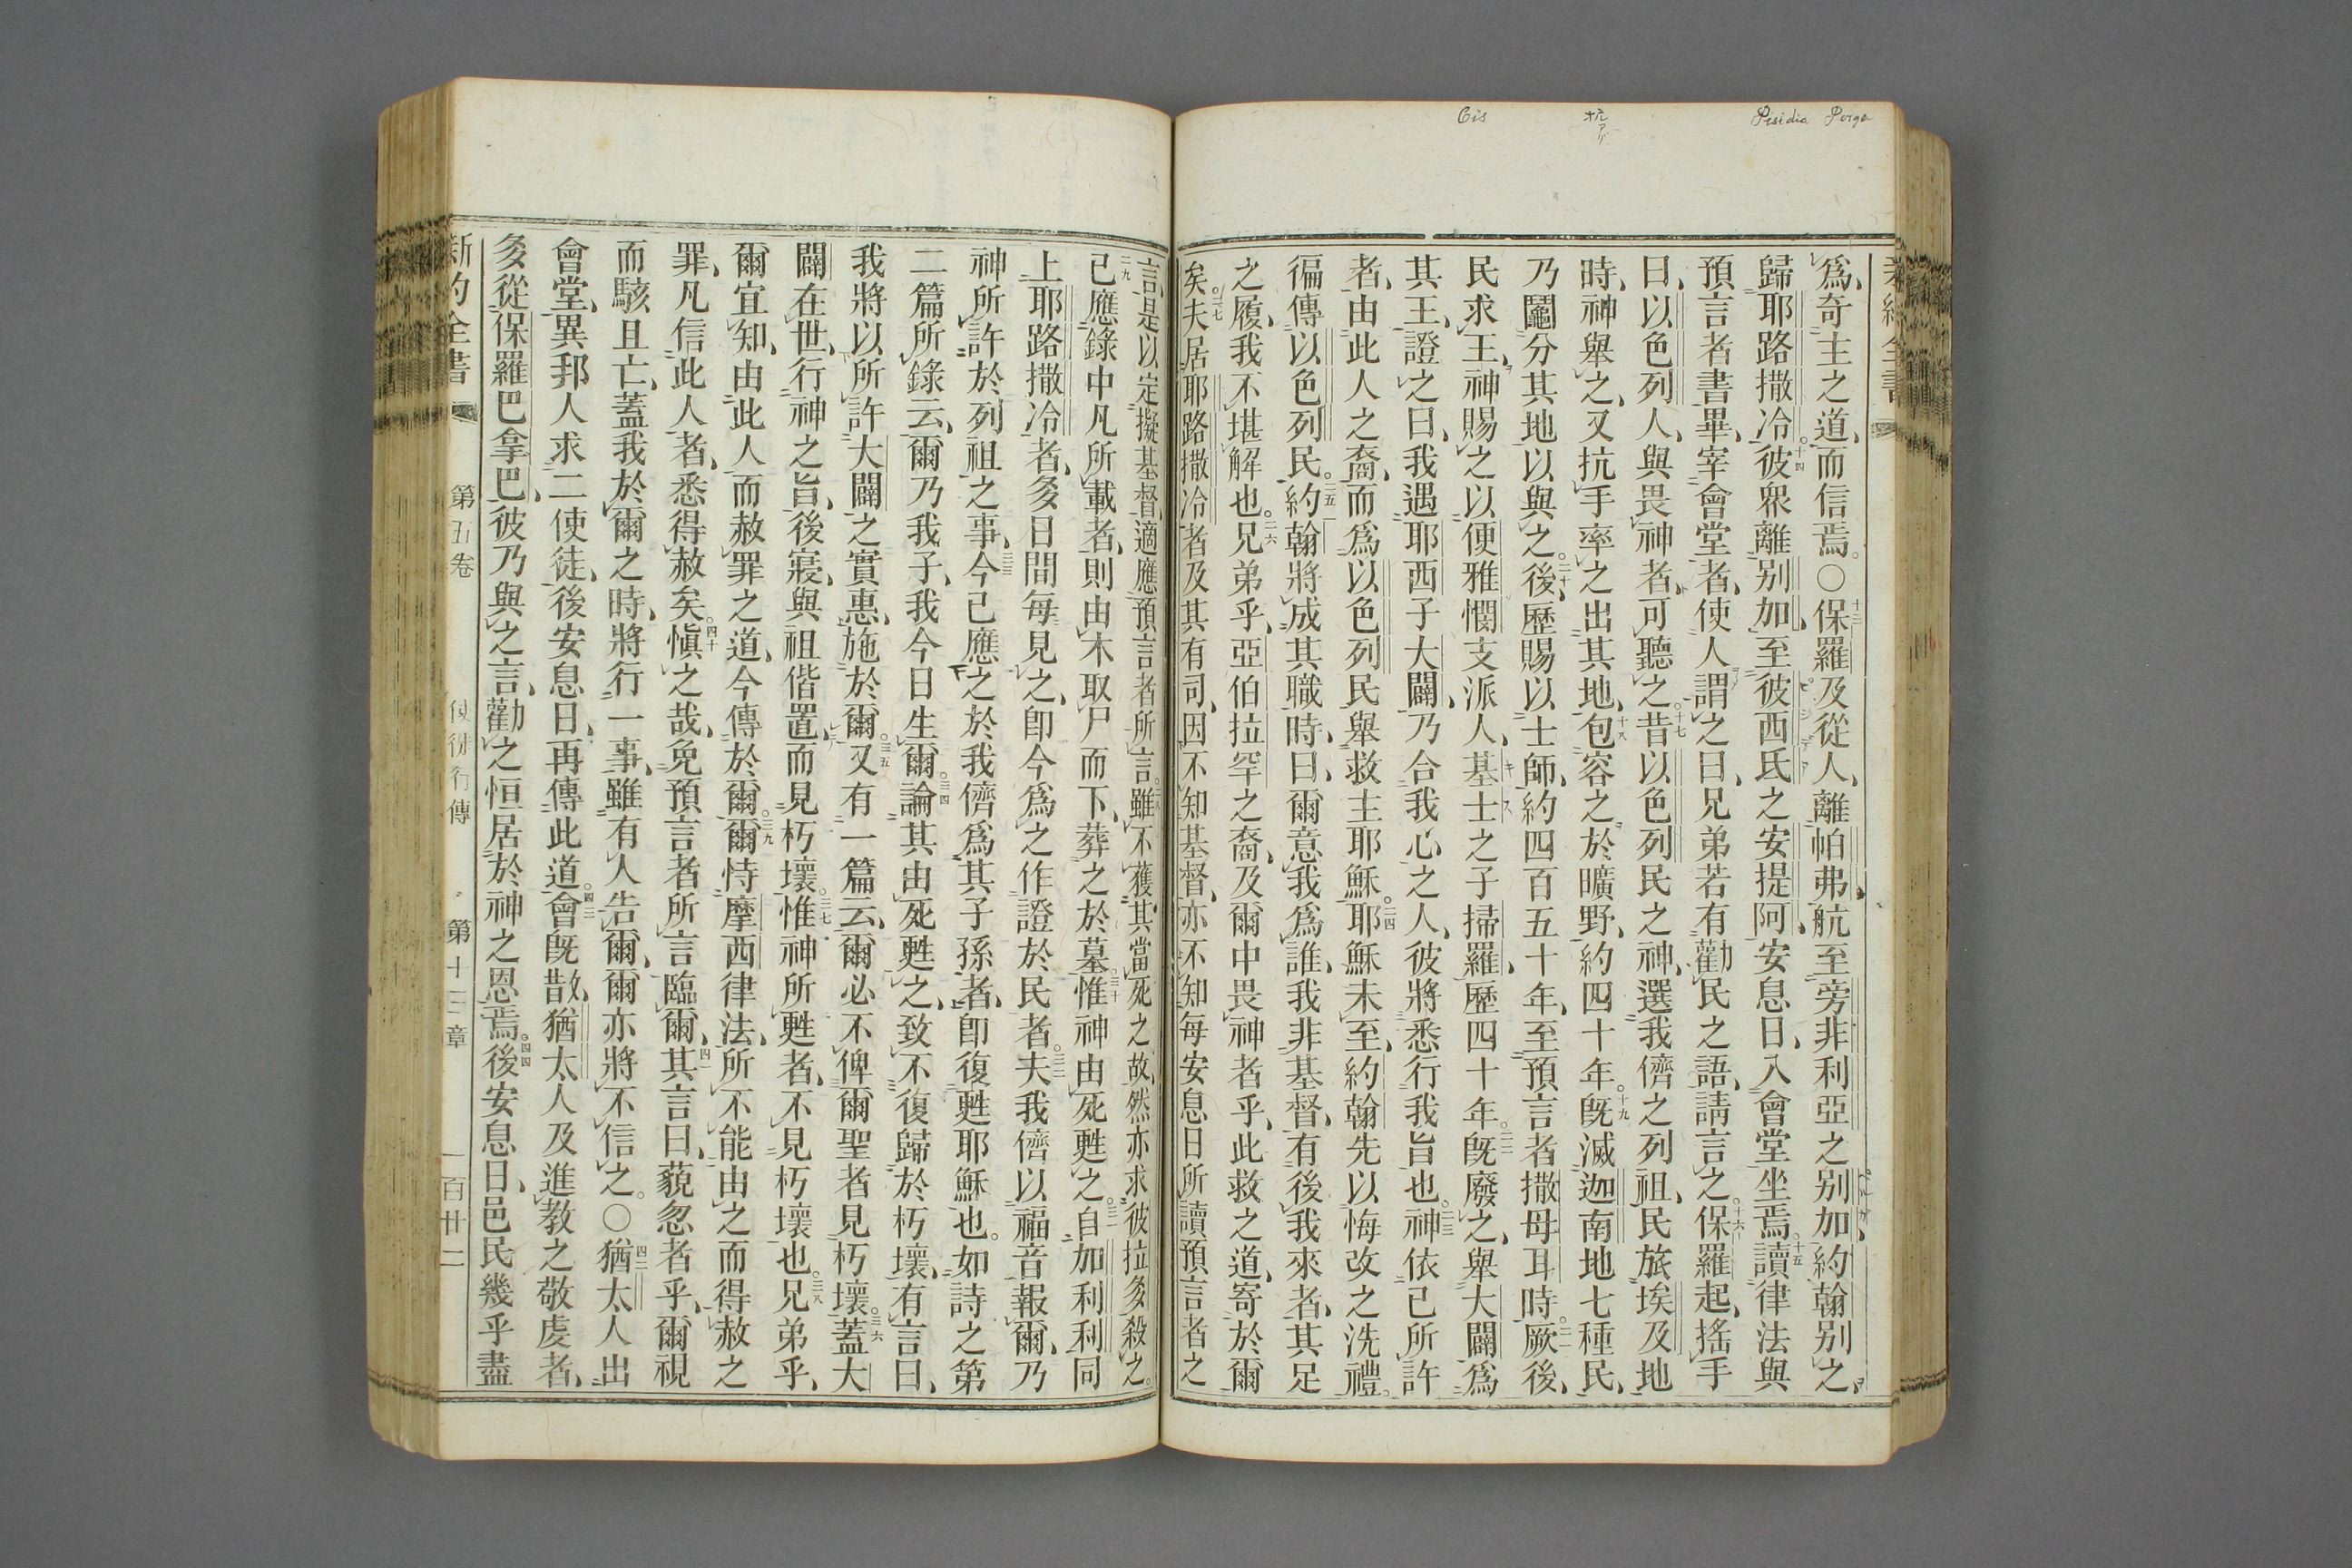 Perga
Pisidia
抗
アゲ
Cis
爲、奇主之道、而信焉。○十三保羅及從人、離帕弗航至旁非利亞之别加、約翰别之、
歸耶路撒冷。十四彼衆離别加、至彼西氏之安提阿、安息日、入會堂坐焉。十五讀律法與
預言者書畢、宰會堂者、使人謂之曰、兄弟若有勸民之語、請言之。十六保羅起、搖手
曰、以色列人、與畏神者、可聽之。十七昔以色列民之神、選我儕之列祖、民旅埃及地
時、神舉之、又抗手率之出其地、十八包容之於曠野、約四十年。十九旣滅迦南地七種民、
乃鬮分其地以與之。二十後、歷賜以士師、約四百五十年、至預言者撒母耳時。二一厥後、
民求王、神賜之以便雅憫支派人、基士之子掃羅、歷四十年。二二旣廢之、舉大闢爲
其王、證之曰、我遇耶西子大闢、乃合我心之人、彼將悉行我旨也。二三神依己所許
者、由此人之裔、而爲以色列民舉救主耶穌。二四耶穌未至、約翰先以悔改之洗禮。
徧傳以色列民。二五約翰將成其職時、曰、爾意我爲誰、我非基督、有後我來者、其足
之履、我不堪解也。二六兄弟乎、亞伯拉罕之裔、及爾中畏神者乎、此救之道、寄於爾
矣。二七夫居耶路撒冷者及其有司、因不知基督、亦不知每安息日所讀預言者之
言、是以定擬基督、適應預言者所言。二八雖不獲其當死之故、然亦求彼拉多殺之。
二九己應錄中凡所載者、則由木取尸而下、葬之於墓。三十惟神由死甦之。三一自加利利同
上耶路撒冷者、多日間每見之、卽今爲之作證於民者。三二夫我儕以福音報爾、乃
神所許於列祖之事、三三今己應之於我儕爲其子孫者、卽復甦耶穌也。如詩之第
二篇所錄云、爾乃我子、我今日生爾。三四論其由死甦之、致不復歸於朽壞、有言曰、
我將以所許大闢之實惠、施於爾。三五又有一篇云、爾必不俾爾聖者見朽壞。三六蓋大
闢在世、行神之旨、後寢、與祖偕置、而見朽壞。三七惟神所甦者、不見朽壞也。三八兄弟乎、
爾宜知、由此人而赦罪之道、今傳於爾。三九爾恃摩西律法、所不能由之而得赦之
罪、凡信此人者、悉得赦矣。四十愼之哉、免預言者所言臨爾、四一其言曰、藐忽者乎、爾視
而駭且亡、蓋我於爾之時、將行一事、雖有人告爾、爾亦將不信之。○四二猶太人出
會堂、異邦人求二使徒、後安息日、再傳此道。四三會旣散、猶太人及進教之敬虔者、
多從保羅巴拿巴、彼乃與之言、勸之恒居於神之恩焉。四四後安息日、邑民幾乎盡
新約全書 第五卷 使徒行傳 第十三章 一百廿二